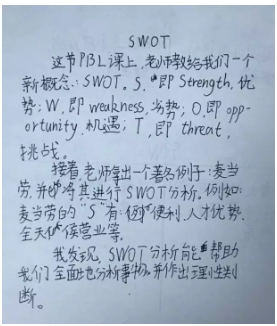 SWOT
这节PBL课上,老师教给我们一个
新概念:SWOT。S,即Strength,优
势;W,即weakness,劣势;O,即opp-
ortunity,机遇;T,即threat,
挑战。
接着,老师拿出一个著名例子:麦当
劳,并将其进行SWOT分析。例如:
麦当劳的"S"有:便利,人才优势,
全天候营业等。
我发现,SWOT分析能帮助
我们全面地分析事物。并作出理性判
断。